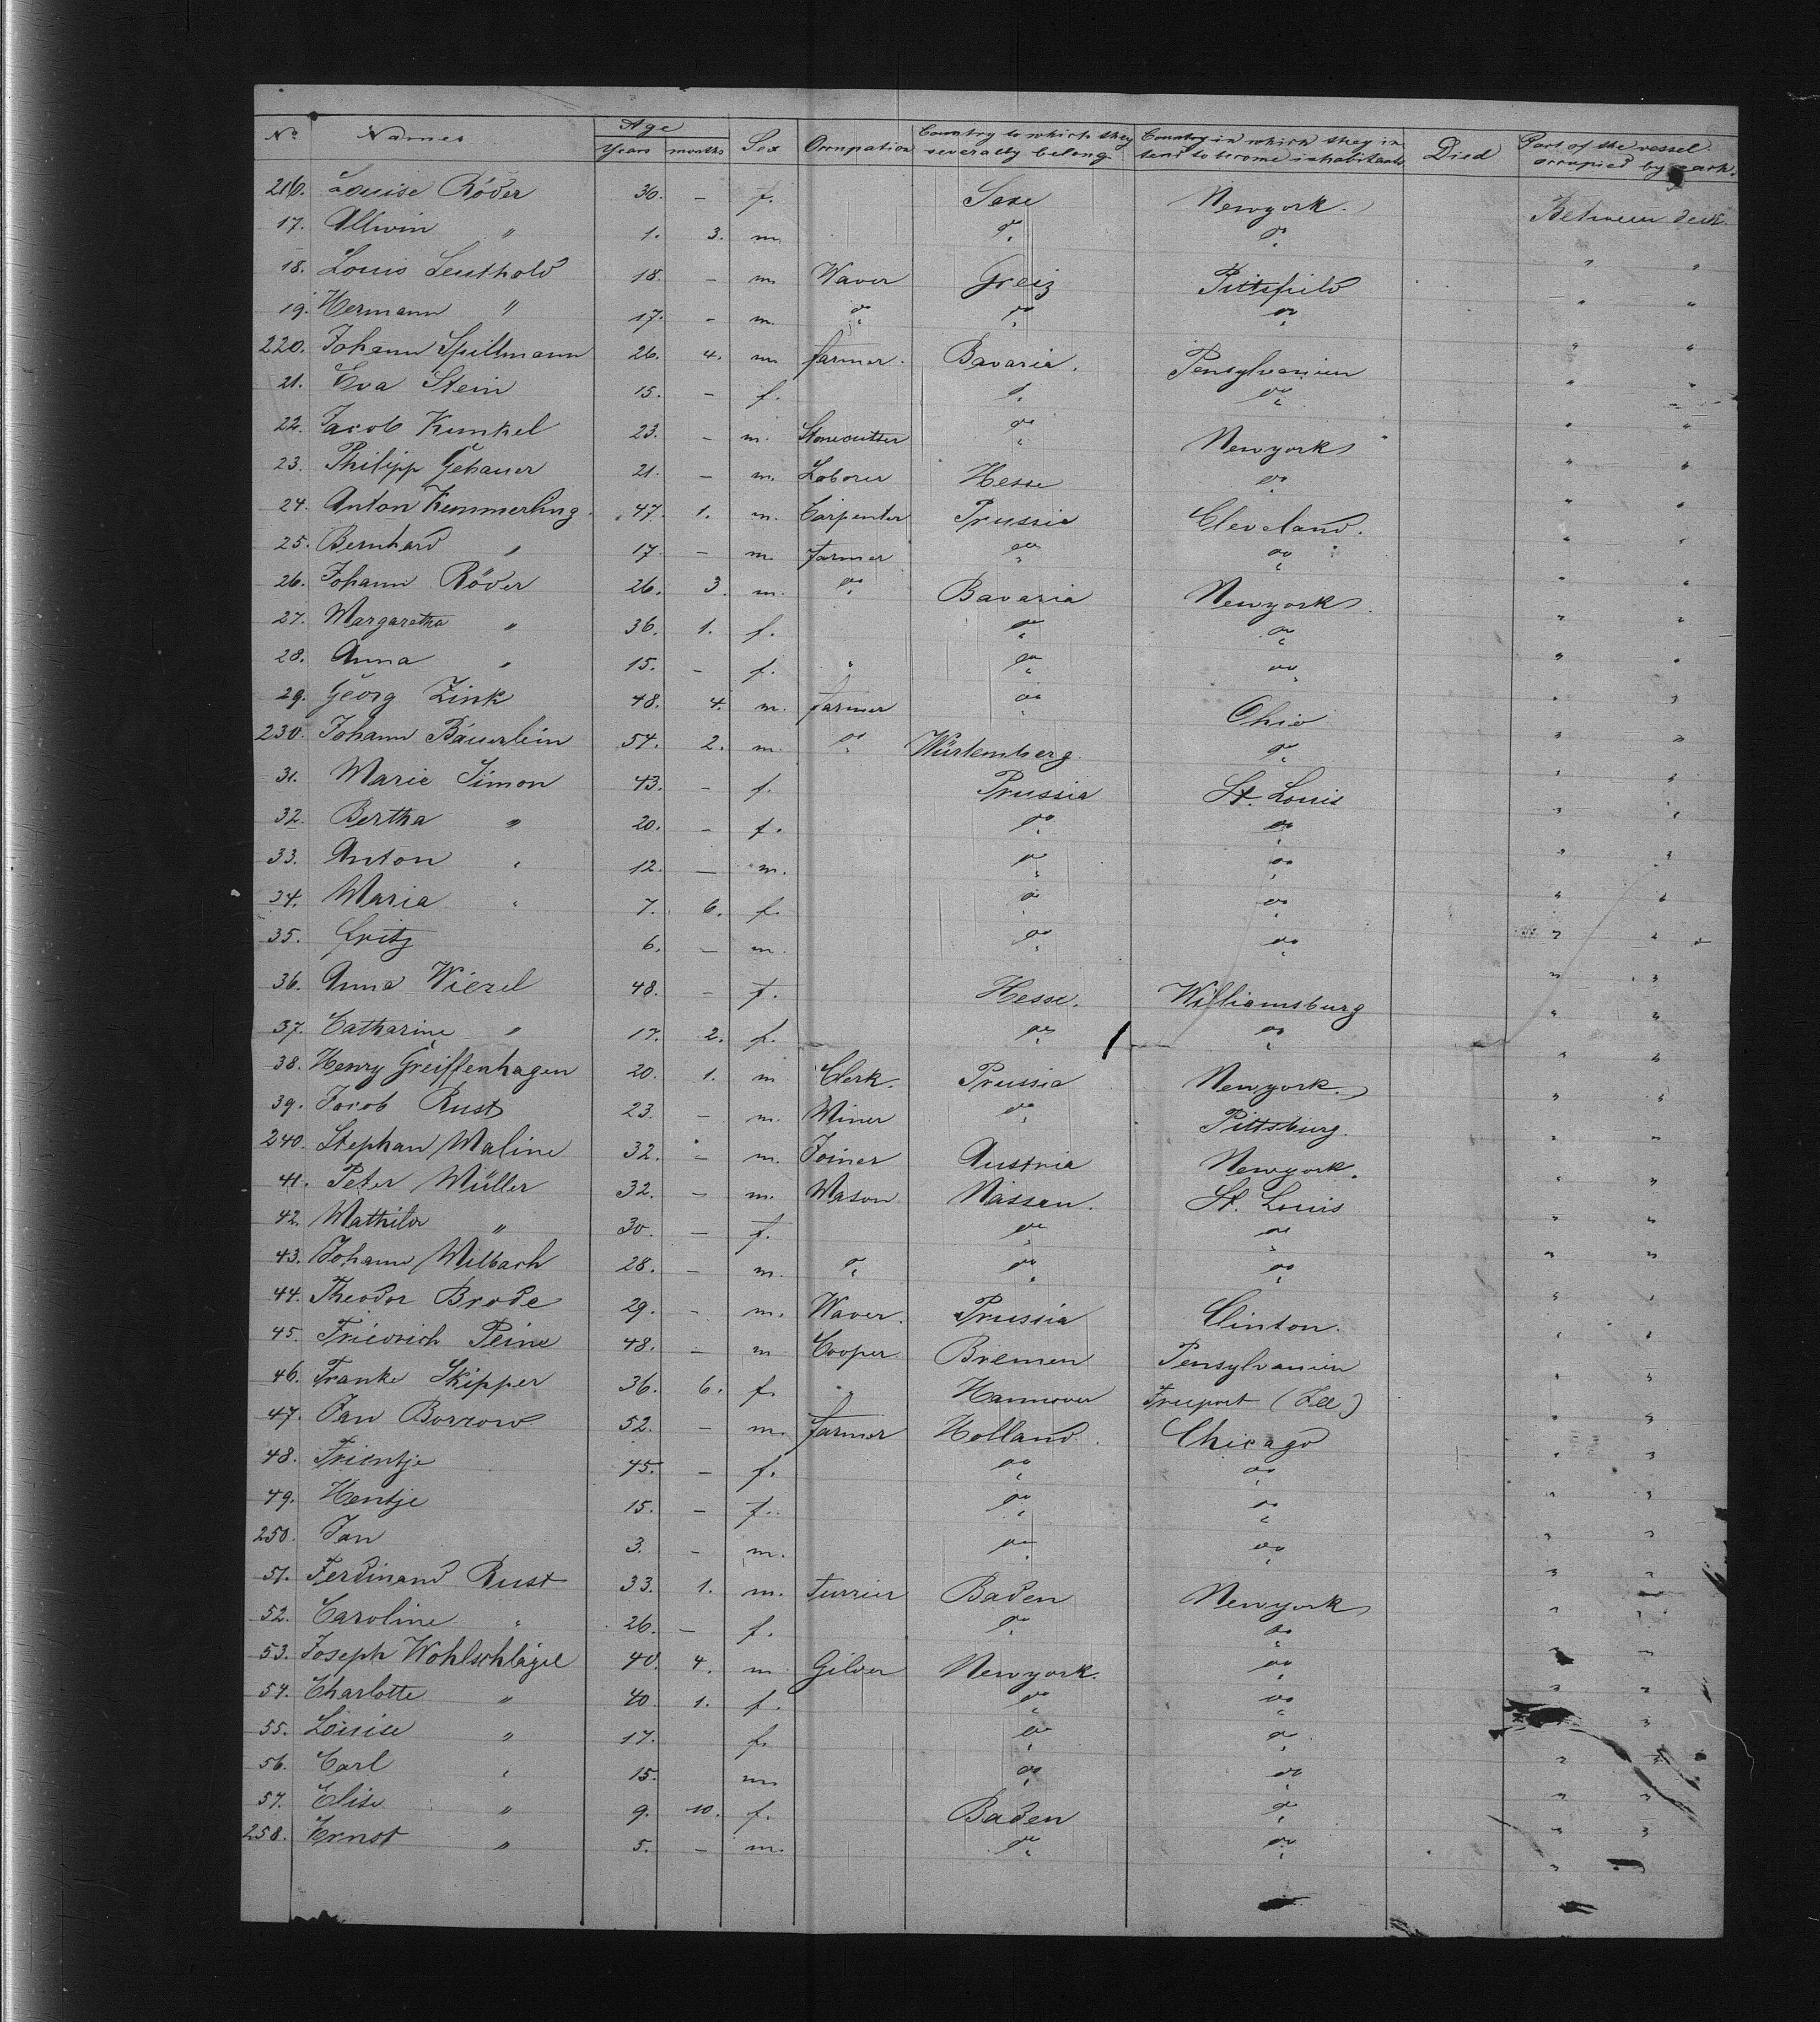 No Names Age Years months Sex Occupation Country to which they severally belong Country in which they intend to become inhabitants Died Part of the vessel occupied by each.
216. Louise Röder 30. – f. Saxe Newyork. Between deck
17. Allwin " 1. 3. m. do do " "
18. Louis Leuthold 18. – m. Waver Greiz Pittsfield " "
19. Hermann " 17. – m. do do do " "
220. Johann Spillmann 26. 4. m. farmer. Bavaria. Pensylvanien " "
21. Eva Stein 15. – f. do do " "
22. Jacob Kunkel 23. – m. Stonecutter do Newyork " "
23. Philipp Gebauer 21. – m. Laborer Hesse do " "
24. Anton Kemmerling. 47. 1. m. Carpenter Prussia Cleveland. " "
25. Bernhard " 17. – m. farmer do do " "
26. Johann Röder 26. 3. m. do Bavaria Newyork. " "
27. Margaretha " 36. 1. f. do do " "
28. Anna " 15. – f. " do do " "
29. Georg Zink 48. 4. m. farmer do Ohio " "
230. Johann Bäuerlein 54. 2. m. do Würtemberg. do " "
31. Marie Simon 43. – f. Prussia St. Louis " "
32. Bertha " 20. – f. do do " "
33. Anton " 12. – m. do do " "
34. Maria " 7. 6. f. do do " "
35. Fritz 6. – m. do do " "
36. Anna Wiezel 48. – f. Hesse. Williamsburg " "
37. Catharine " 17. 2. f. do do " "
38. Henry Greiffenhagen 20. 1. m Clerk. Prussia Newyork. " "
39. Jacob Rust 23. – m. Miner do Pittsburg. " "
240. Stephan Maline 32. – m. Joiner Austria Newyork. " "
41. Peter Müller 32. – m. Mason Nassau. St. Louis " "
42. Mathilde " 30. – f. do do " "
43. Johann Milbach 28. – m. do do do " "
44. Theodor Brode 29. – m. Waver. Prussia Clinton. " "
45. Friedrich Peine 48. – m Cooper Bremen Pensylvanien " "
46. Franke Skipper 36. 6. f. " Hannover Freeport (Ill.) " "
47. Jan Borrow 52. – m. farmer Holland. Chicago " "
48. Trientje 45. – f. do do " "
49. Hentje 15. – f. do do " "
250. Jan 3. – m. do do " "
51. Ferdinand Rust 33. 1. m. Furrier Baden Newyork " "
52. Caroline " 26. – f. do do " "
53. Joseph Wohlschlägel 40. 4. m Gilder Newyork. do " "
54. Charlotte " 40. 1. f. do do " "
55. Louise " 17. f. do do " "
56. Carl " 15. m. do do " "
57. Elise " 9. 10. f. Baden do " "
258. Ernst " 5. – m. do do " "